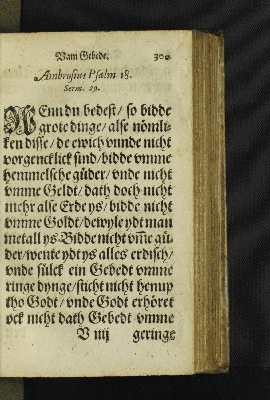 Vam Gebede. 30
Ambrosius Psalm 18.
Serm. 29.
WEnn du bedest / so bidde
grote dinge / alse nömli-
ken disse / de ewich vnnde nicht
vorgencklick sind / bidde vmme
hemmelsche güder / vnde nicht
vmme Geldt / dath doch nicht
mehr alse Erde ys / bidde nicht
vmme Goldt / dewyle ydt man
metall ys. Bidde nicht vm̃e gü-
der / wente ydt ys alles erdisch /
vnde sülck ein Gebedt vmme
ringe dynge / sticht nicht henup
tho Godt / vnde Godt erhöret
ock nicht dath Gebedt vmme
V iiij geringe